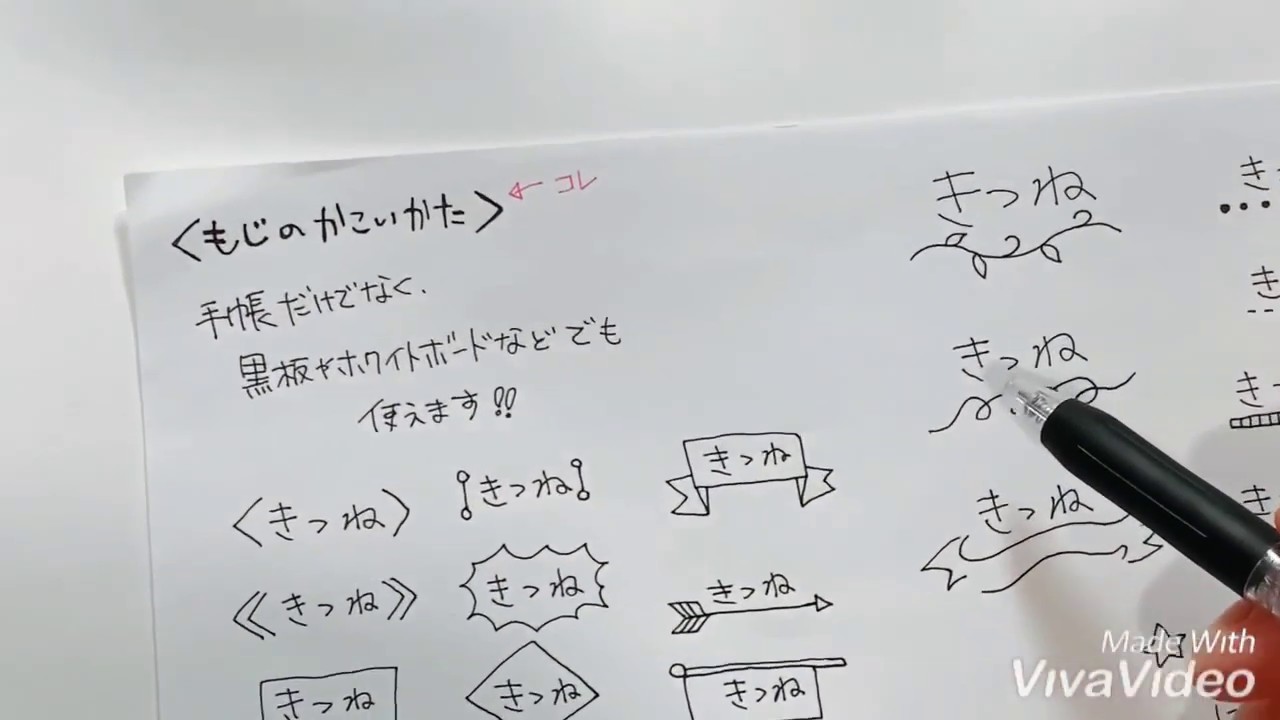 <もじのかこいかた> ← コレ
手帳だけでなく、
黒板やホワイトボードなどでも
使えます!!
<きつね>
きつね
きつね
≪きつね≫
きつね
きつね
きつね
きつね
きつね
きつね
きつね
きつね
き
き
き
き
Made With
VivaVideo